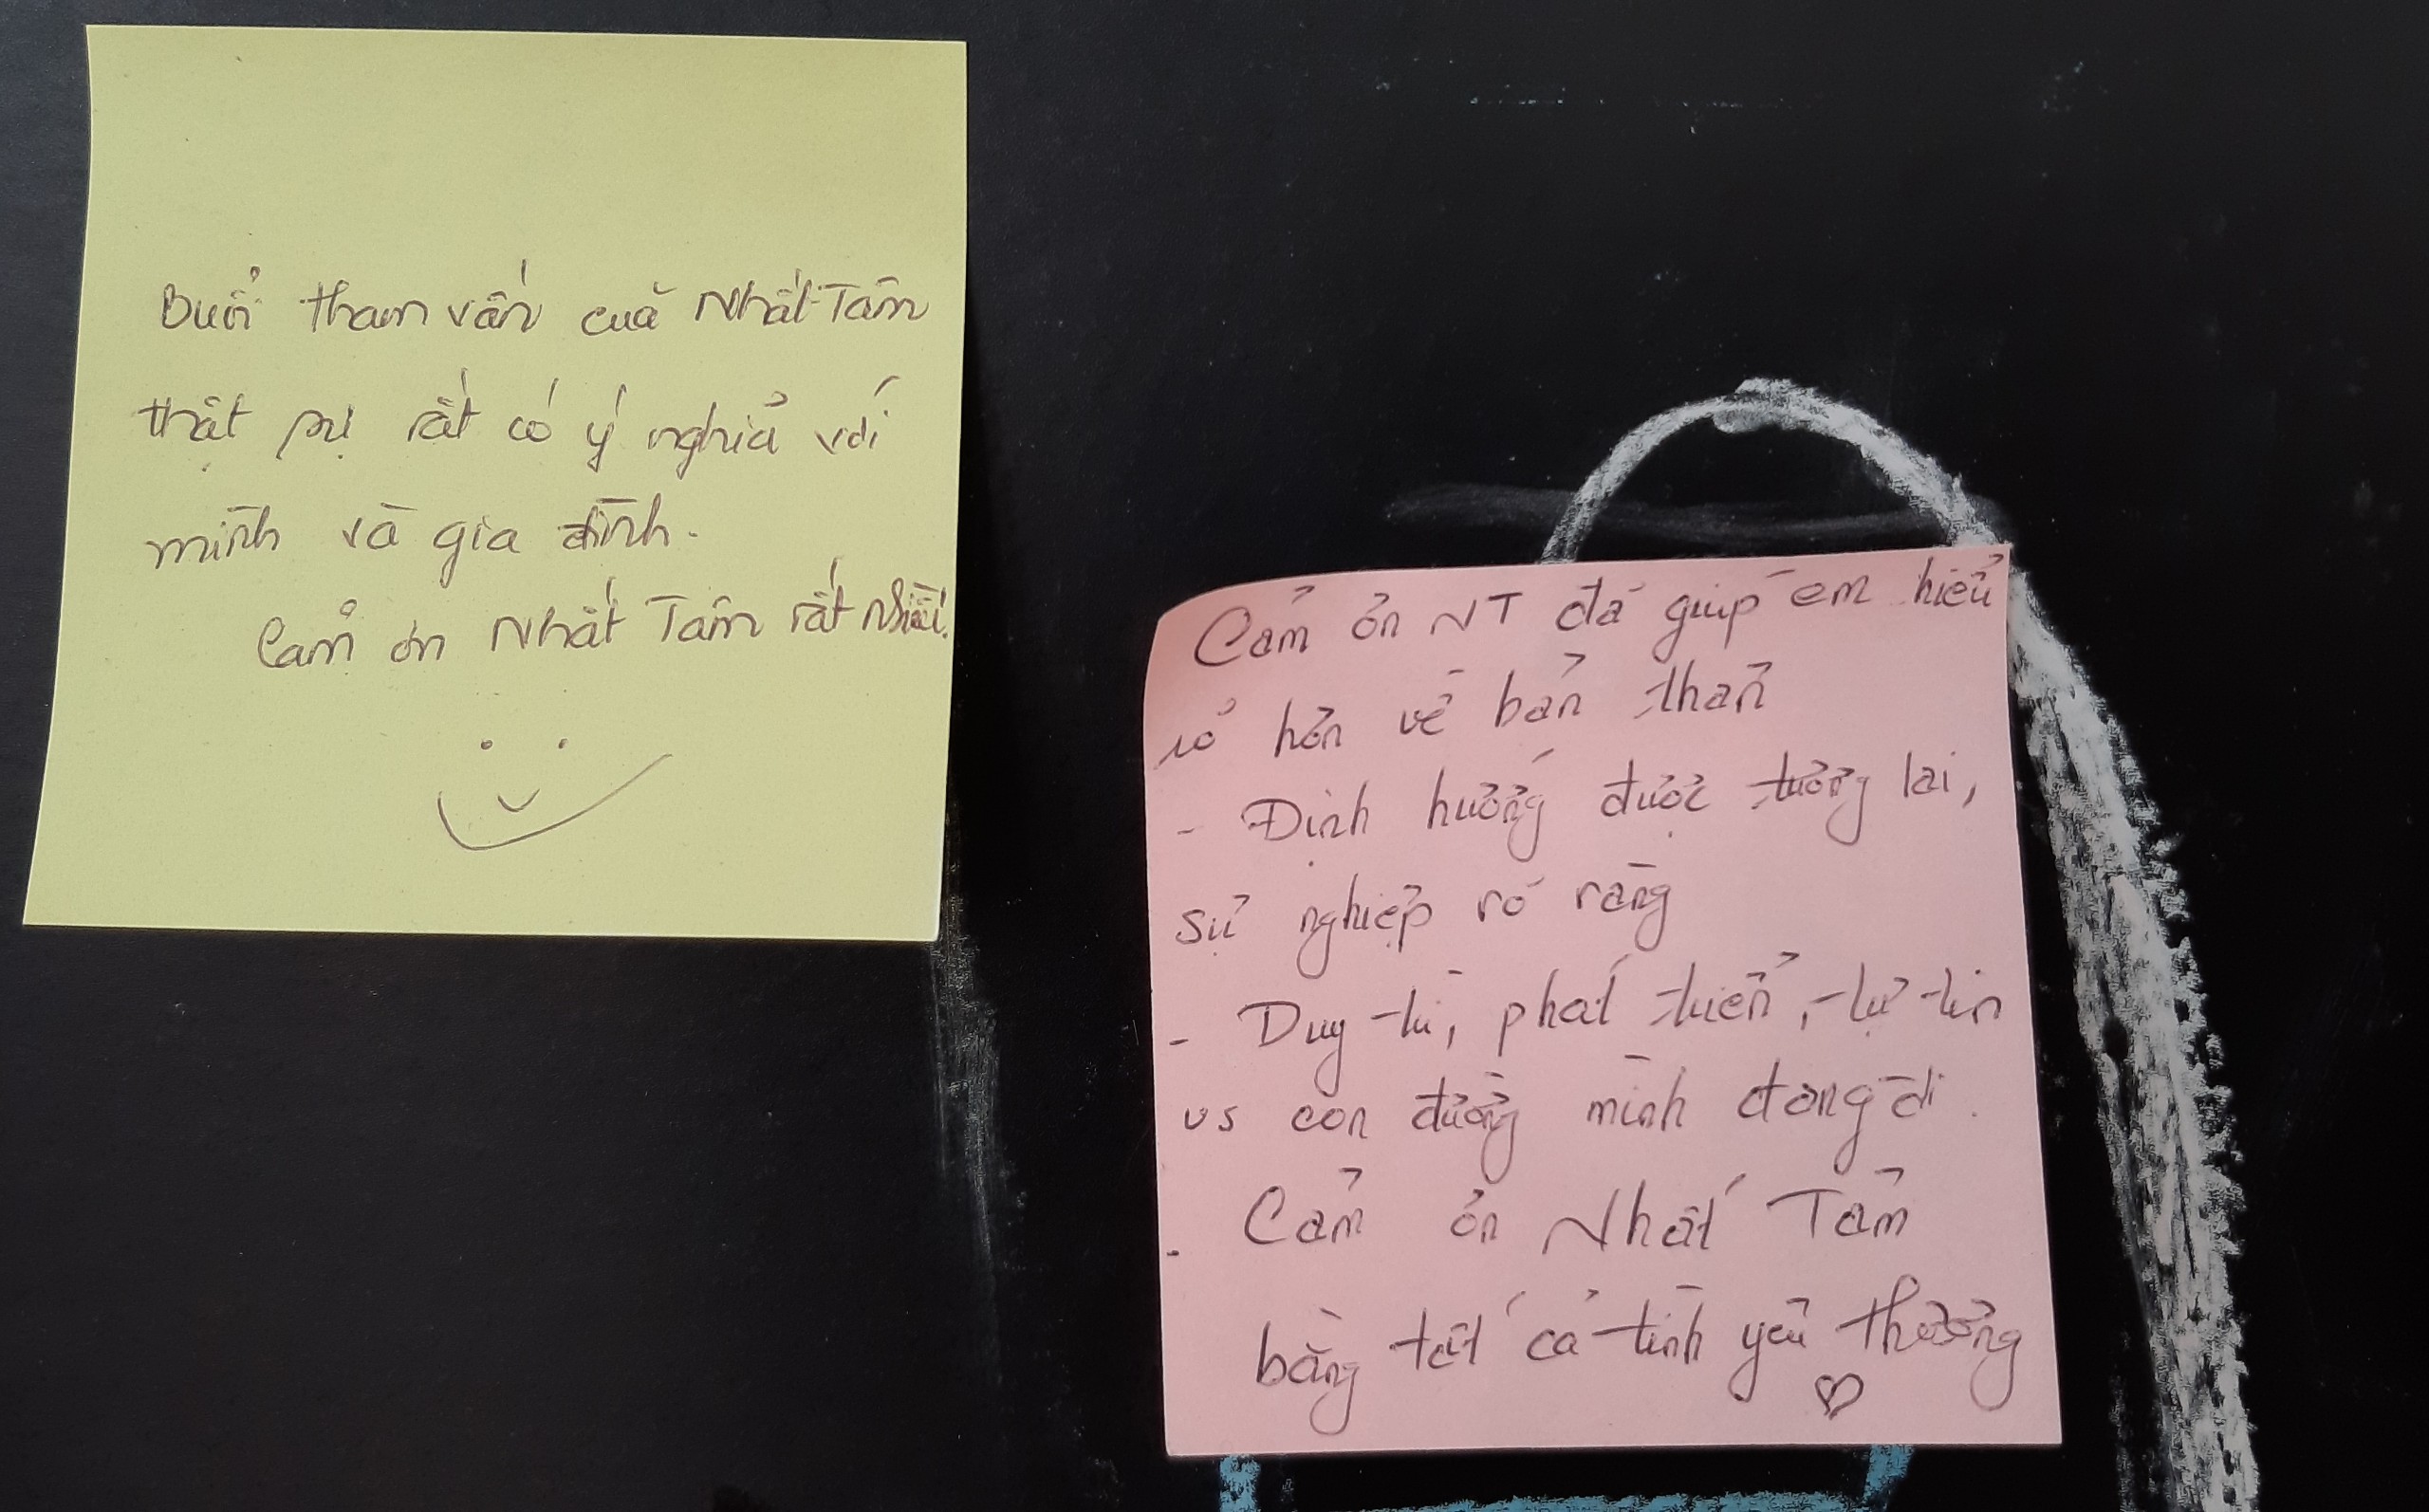 Buổi tham vấn của Nhất Tâm
thật sự rất có ý nghĩa với
mình và gia đình.
Cảm ơn Nhất Tâm rất nhiều.
Cảm ơn NT đã giúp em hiểu
rõ hơn về bản thân
- Định hướng được tương lai,
sự nghiệp rõ ràng
- Duy trì, phát triển, tự tin
vs con đường mình đang đi.
- Cảm ơn Nhất Tâm
bằng tất cả tình yêu thương